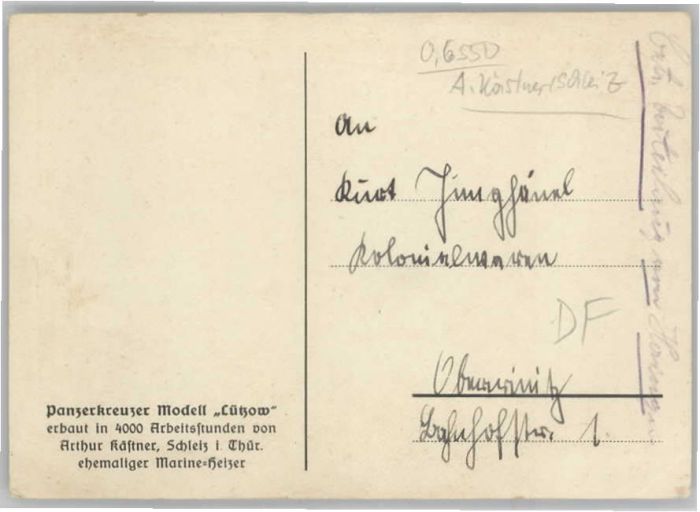 Panzerkreuzer Modell „Lützow"
erbaut in 4000 Arbeitsstunden von
Arthur Kästner, Schleiz i. Thür.
ehemaliger Marine-Heizer
0,6550
A. Kästner/Schleiz
An
Kurt Junghänel
Kolonialwaren
DF
Bahnhofstr. 1.